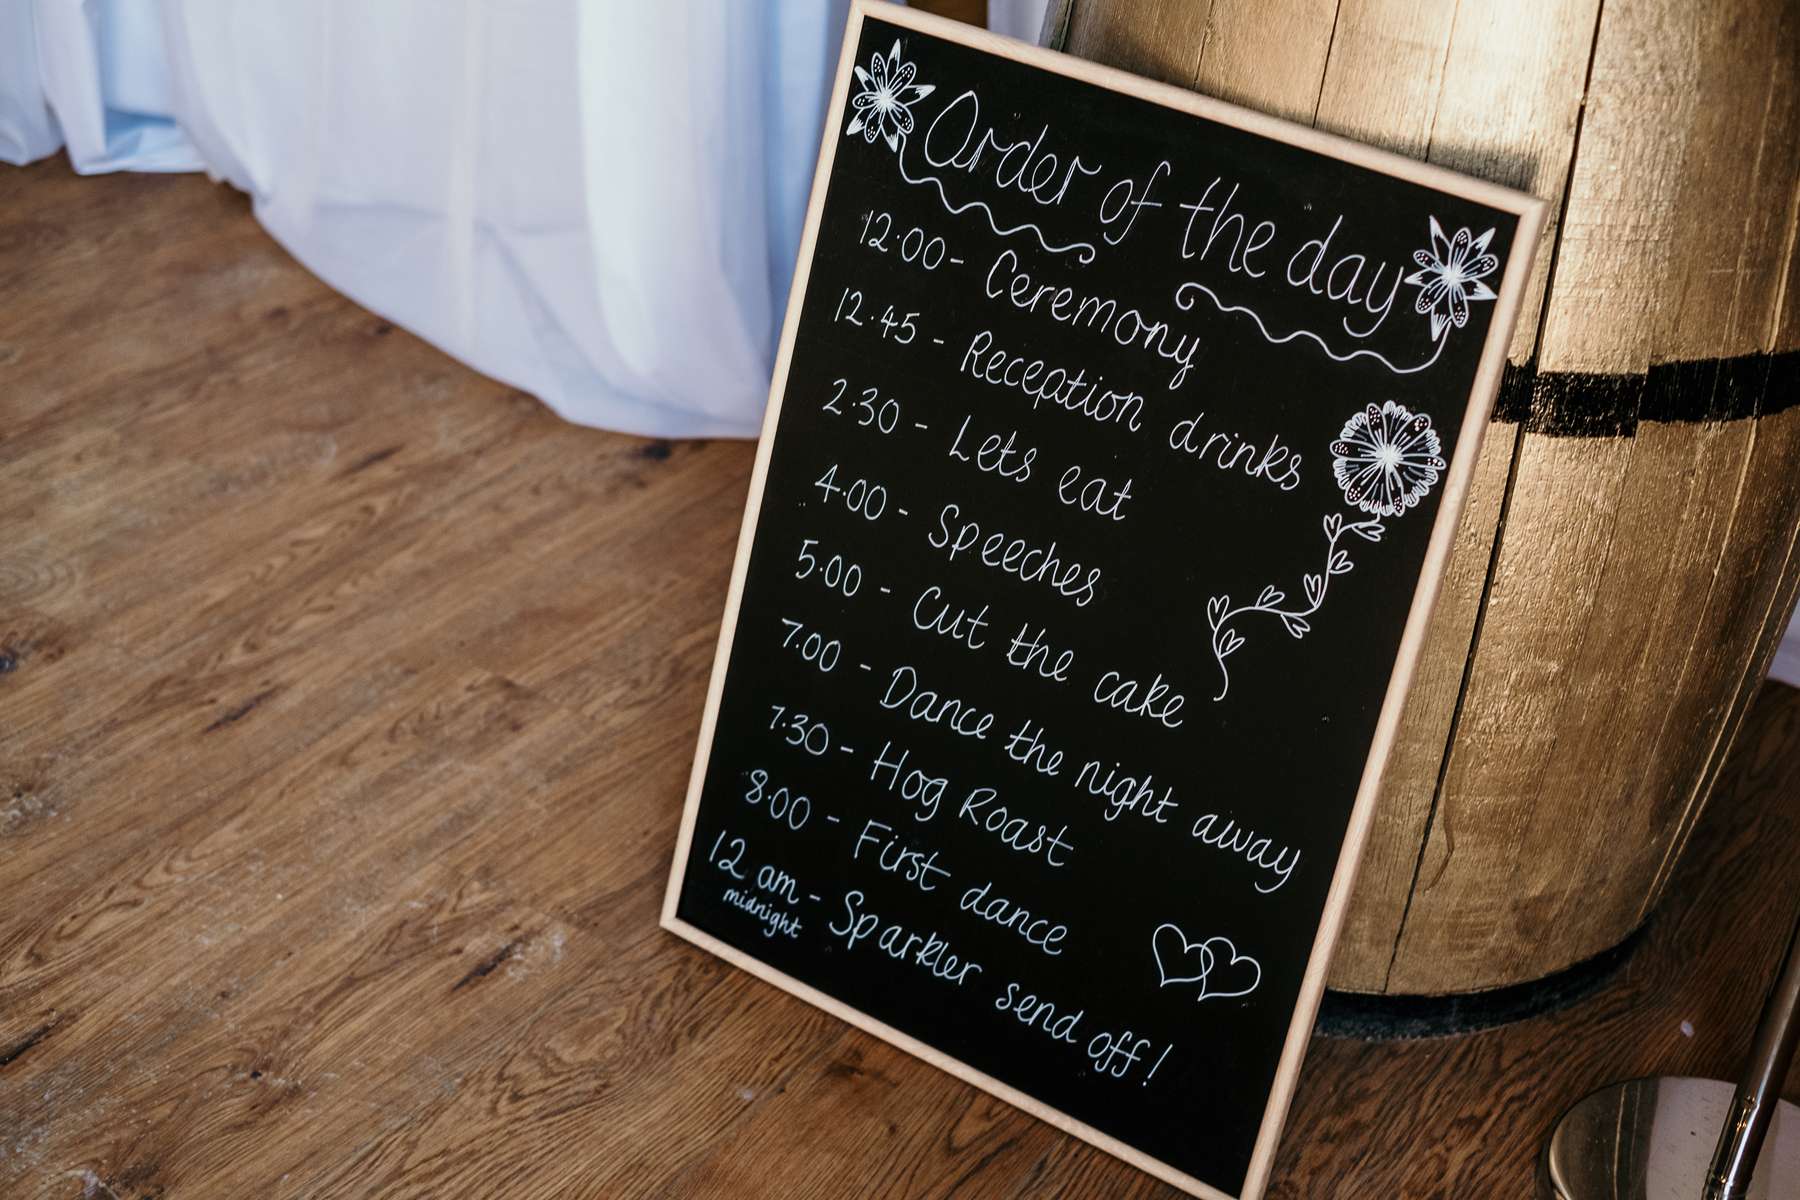 Order of the day
12:00 - Ceremony
12.45 - Reception drinks
2.30 - Lets eat
4.00 - Speeches
5.00 - Cut the cake
7.00 - Dance the night away
7.30 - Hog Roast
8.00 - First dance
12 am - Sparkler send off!
midnight